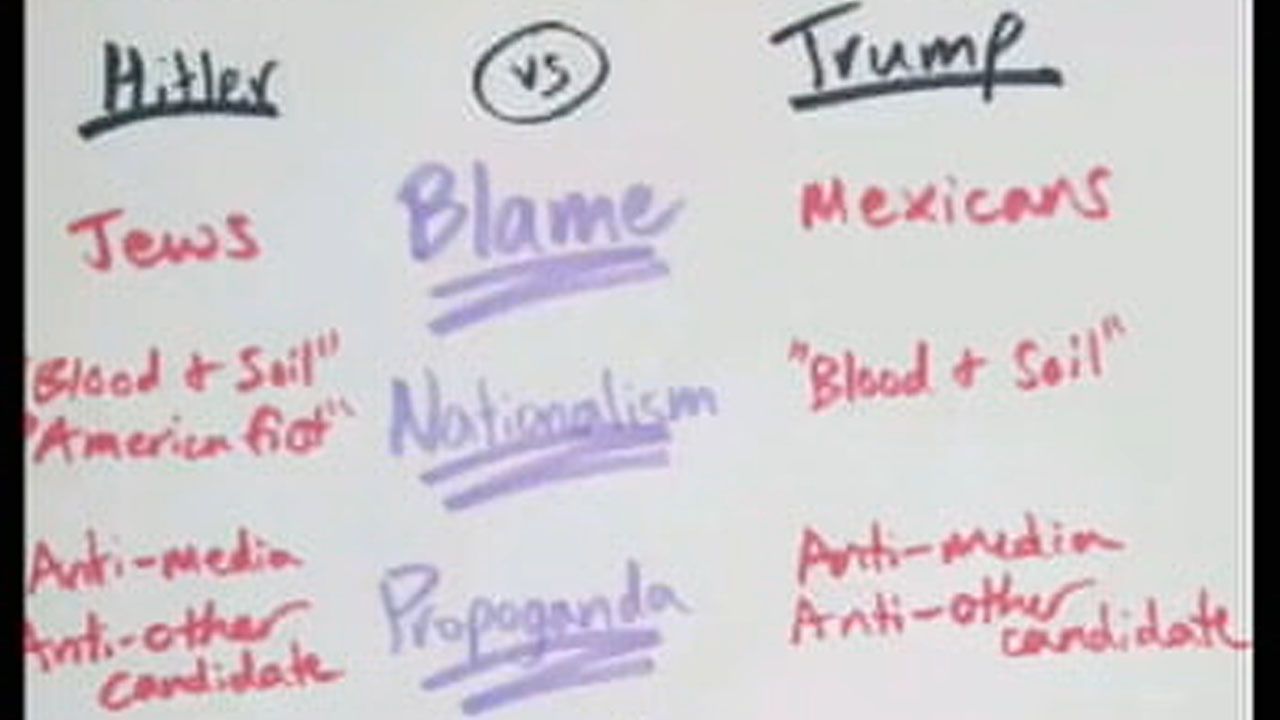 Hitler vs Trump
Jews Blame Mexicans
"Blood + Soil" Nationalism "Blood + Soil"
"America first"
Anti-media Propoganda Anti-media
Anti-other Anti-other
candidate candidate